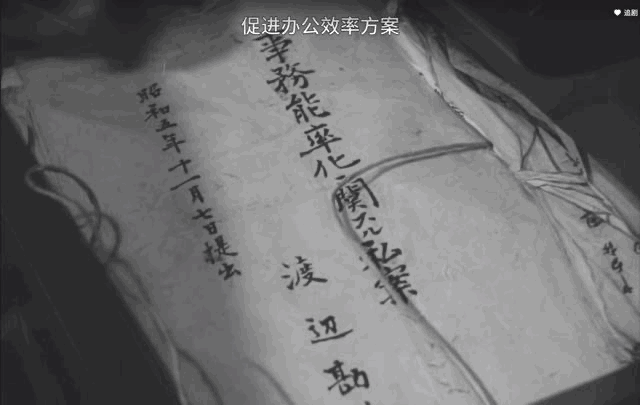 促进办公效率方案
追剧
事務能率化関スル私案
昭和五年十一月七日提出
渡辺勘